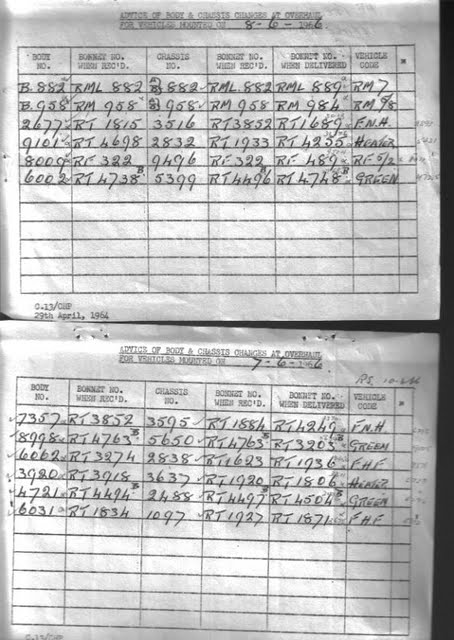 ADVICE OF BODY & CHASSIS CHANGES AT OVERHAUL
FOR VEHICLES MOUNTED ON 8-6-1966
BODY NO. BONNET NO. WHEN REC'D. CHASSIS NO. BONNET NO. WHEN REC'D. BONNET NO. WHEN DELIVERED VEHICLE CODE
B.882 RML 882 882 RML 882 RML 889 RM 7
B.958 RM 958 958 RM 958 RM 984 RM 5/8
2677 RT 1815 3516 RT 3852 RT 1689 F.N.H
9101 RT 4698 2832 RT 1933 RT 4255 HEAVER
8000 RF 322 9496 RF 322 RF 489 RF 5/2
6002 RT 4738 B 5399 RT 4496 B RT 4748 B GREEN
C.13/CHP
29th April, 1964
ADVICE OF BODY & CHASSIS CHANGES AT OVERHAUL
FOR VEHICLES MOUNTED ON 7-6-1966
BODY NO. BONNET NO. WHEN REC'D. CHASSIS NO. BONNET NO. WHEN REC'D. BONNET NO. WHEN DELIVERED VEHICLE CODE
7357 RT 3852 3595 RT 1884 RT 4249 F.N.H
8998 RT 4763 B 5650 RT 4763 B RT 3203 B GREEN
6062 RT 3274 2838 RT 1623 RT 1936 F.H.F
3920 RT 3918 3637 RT 1920 RT 1806 HEAVER
4721 RT 4494 B 2488 RT 4497 RT 4504 B GREEN
6031 RT 1834 1097 RT 1927 RT 1871 F.H.F
C.13/CHP